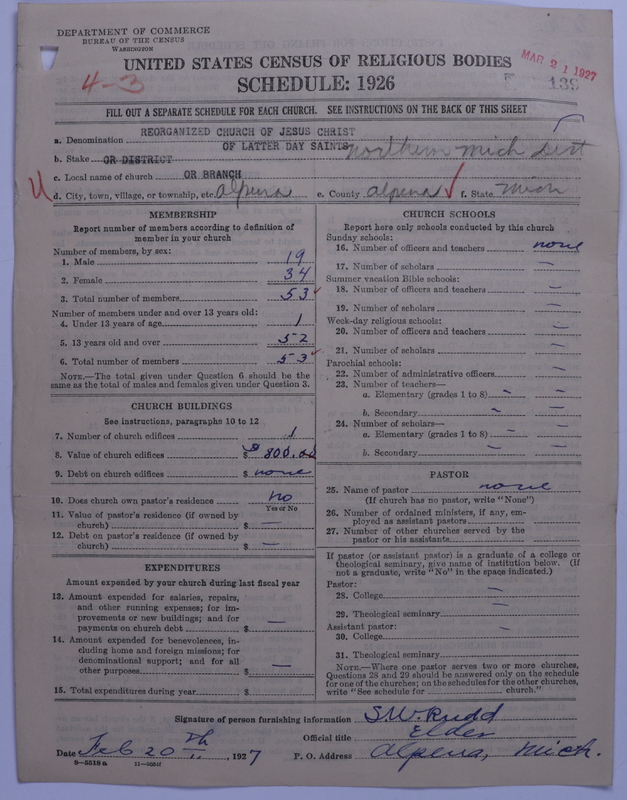 DEPARTMENT OF COMMERCE
BUREAU OF THE CENSUS
WASHINGTON
UNITED STATES CENSUS OF RELIGIOUS BODIES
SCHEDULE: 1926
MAR 21 1927
4-3
138
FILL OUT A SEPARATE SCHEDULE FOR EACH CHURCH. SEE INSTRUCTIONS ON THE BACK OF THIS SHEET
REORGANIZED CHURCH OF JESUS CHRIST
a. Denomination
OF LATTER DAY SAINTS
b. Stake OR DISTRICT Northern Mich Dist
c. Local name of church OR BRANCH
d. City, town, village, or township, etc. Alpena e. County Alpena f. State Mich
MEMBERSHIP
Report number of members according to definition of
member in your church
Number of members, by sex:
1. Male 19
2. Female 34
3. Total number of members 53
Number of members under and over 13 years old:
4. Under 13 years of age 1
5. 13 years old and over 52
6. Total number of members 53
NOTE.—The total given under Question 6 should be the
same as the total of males and females given under Question 3.
CHURCH BUILDINGS
See instructions, paragraphs 10 to 12
7. Number of church edifices 1
8. Value of church edifices $ 800.00
9. Debt on church edifices $ none
10. Does church own pastor's residence no
Yes or No
11. Value of pastor's residence (if owned by
church) $ —
12. Debt on pastor's residence (if owned by
church) $ —
EXPENDITURES
Amount expended by your church during last fiscal year
13. Amount expended for salaries, repairs,
and other running expenses; for im-
provements or new buildings; and for
payments on church debt $ —
14. Amount expended for benevolences, in-
cluding home and foreign missions; for
denominational support; and for all
other purposes $ —
15. Total expenditures during year $
CHURCH SCHOOLS
Report here only schools conducted by this church
Sunday schools:
16. Number of officers and teachers none
17. Number of scholars —
Summer vacation Bible schools:
18. Number of officers and teachers —
19. Number of scholars —
Week-day religious schools:
20. Number of officers and teachers —
21. Number of scholars —
Parochial schools:
22. Number of administrative officers —
23. Number of teachers—
a. Elementary (grades 1 to 8) —
b. Secondary —
24. Number of scholars—
a. Elementary (grades 1 to 8) —
b. Secondary —
PASTOR
25. Name of pastor none
(If church has no pastor, write "None")
26. Number of ordained ministers, if any, em-
ployed as assistant pastors —
27. Number of other churches served by the
pastor or his assistants —
If pastor (or assistant pastor) is a graduate of a college or
theological seminary, give name of institution below. (If
not a graduate, write "No" in the space indicated.)
Pastor:
28. College —
29. Theological seminary —
Assistant pastor:
30. College —
31. Theological seminary
NOTE.—Where one pastor serves two or more churches,
Questions 28 and 29 should be answered only on the schedule
for one of the churches; on the schedules for the other churches,
write "See schedule for church."
Signature of person furnishing information S.W. Rudd
Official title Elder
Date Feb 20 th, 1927 P. O. Address Alpena, Mich.
8-5518 a